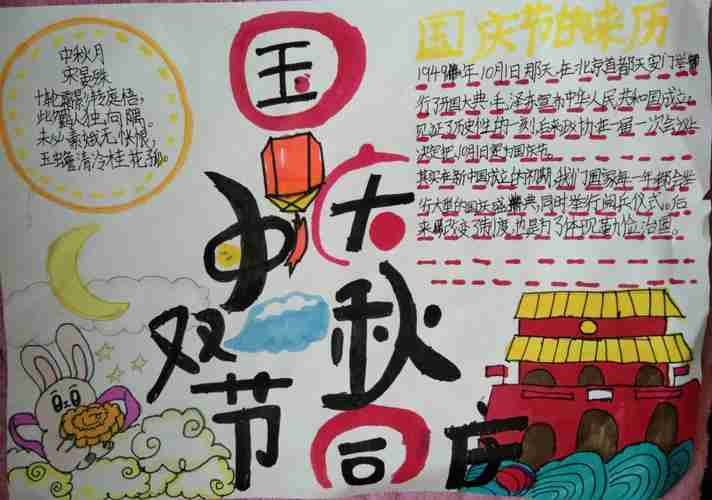 中秋月
宋晏殊
十轮霜影转庭梧,
此夕羁人独向隅。
未必素娥无怅恨,
玉蟾清冷桂花孤。
国庆
中秋
双节
同庆
国庆节的来历
1949年10月1日那天,在北京首都天安门举
行了开国大典,毛泽东宣布中华人民共和国成立
见证了历史性的一刻,后来政协在一届一次会议
决定把10月1日定为国庆节。
其实在新中国成立的初期,我们国家每一年都会举
行大型的国庆盛典,同时举行阅兵仪式。后
来改变了制度,也是为了体现勤俭治国。